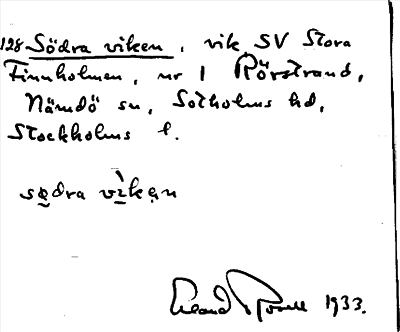 128 Södra viken, vik SV Stora
Finnholmen, nr 1 Rörstrand,
Nämdö sn, Sotholms hd,
Stockholms l.
sø̱dra vì̱kən
Erland Rosell 1933.